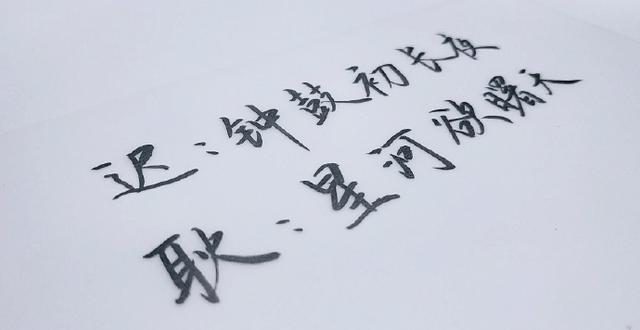 迟〻钟鼓初长夜
耿〻星河欲曙天